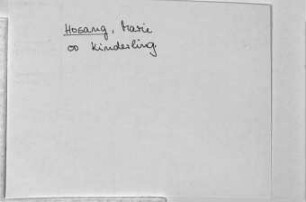 Hosang, Marie
∞ Kinderling